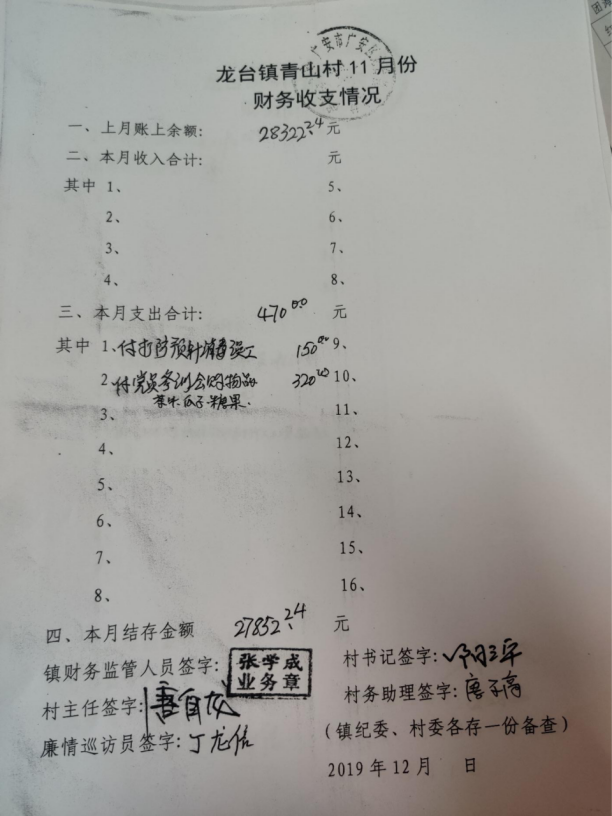 广安市广安区
龙台镇青山村11月份
财务收支情况
一、上月账上余额: 28322.24元
二、本月收入合计: 元
其中 1、 5、
2、 6、
3、 7、
4、 8、
三、本月支出合计: 470.00 元
其中 1、付打防预针消毒误工 150.00 9、
2、付党员培训会购物品 320.00 10、
茶叶.瓜子.糖果.
3、 11、
4、 12、
5、 13、
6、 14、
7、 15、
8、 16、
四、本月结存金额 27852.24 元
镇财务监管人员签字: 张学成 村书记签字:
业务章
村主任签字: 村务助理签字:
廉情巡访员签字: 丁龙 (镇纪委、村委各存一份备查)
2019年12月 日